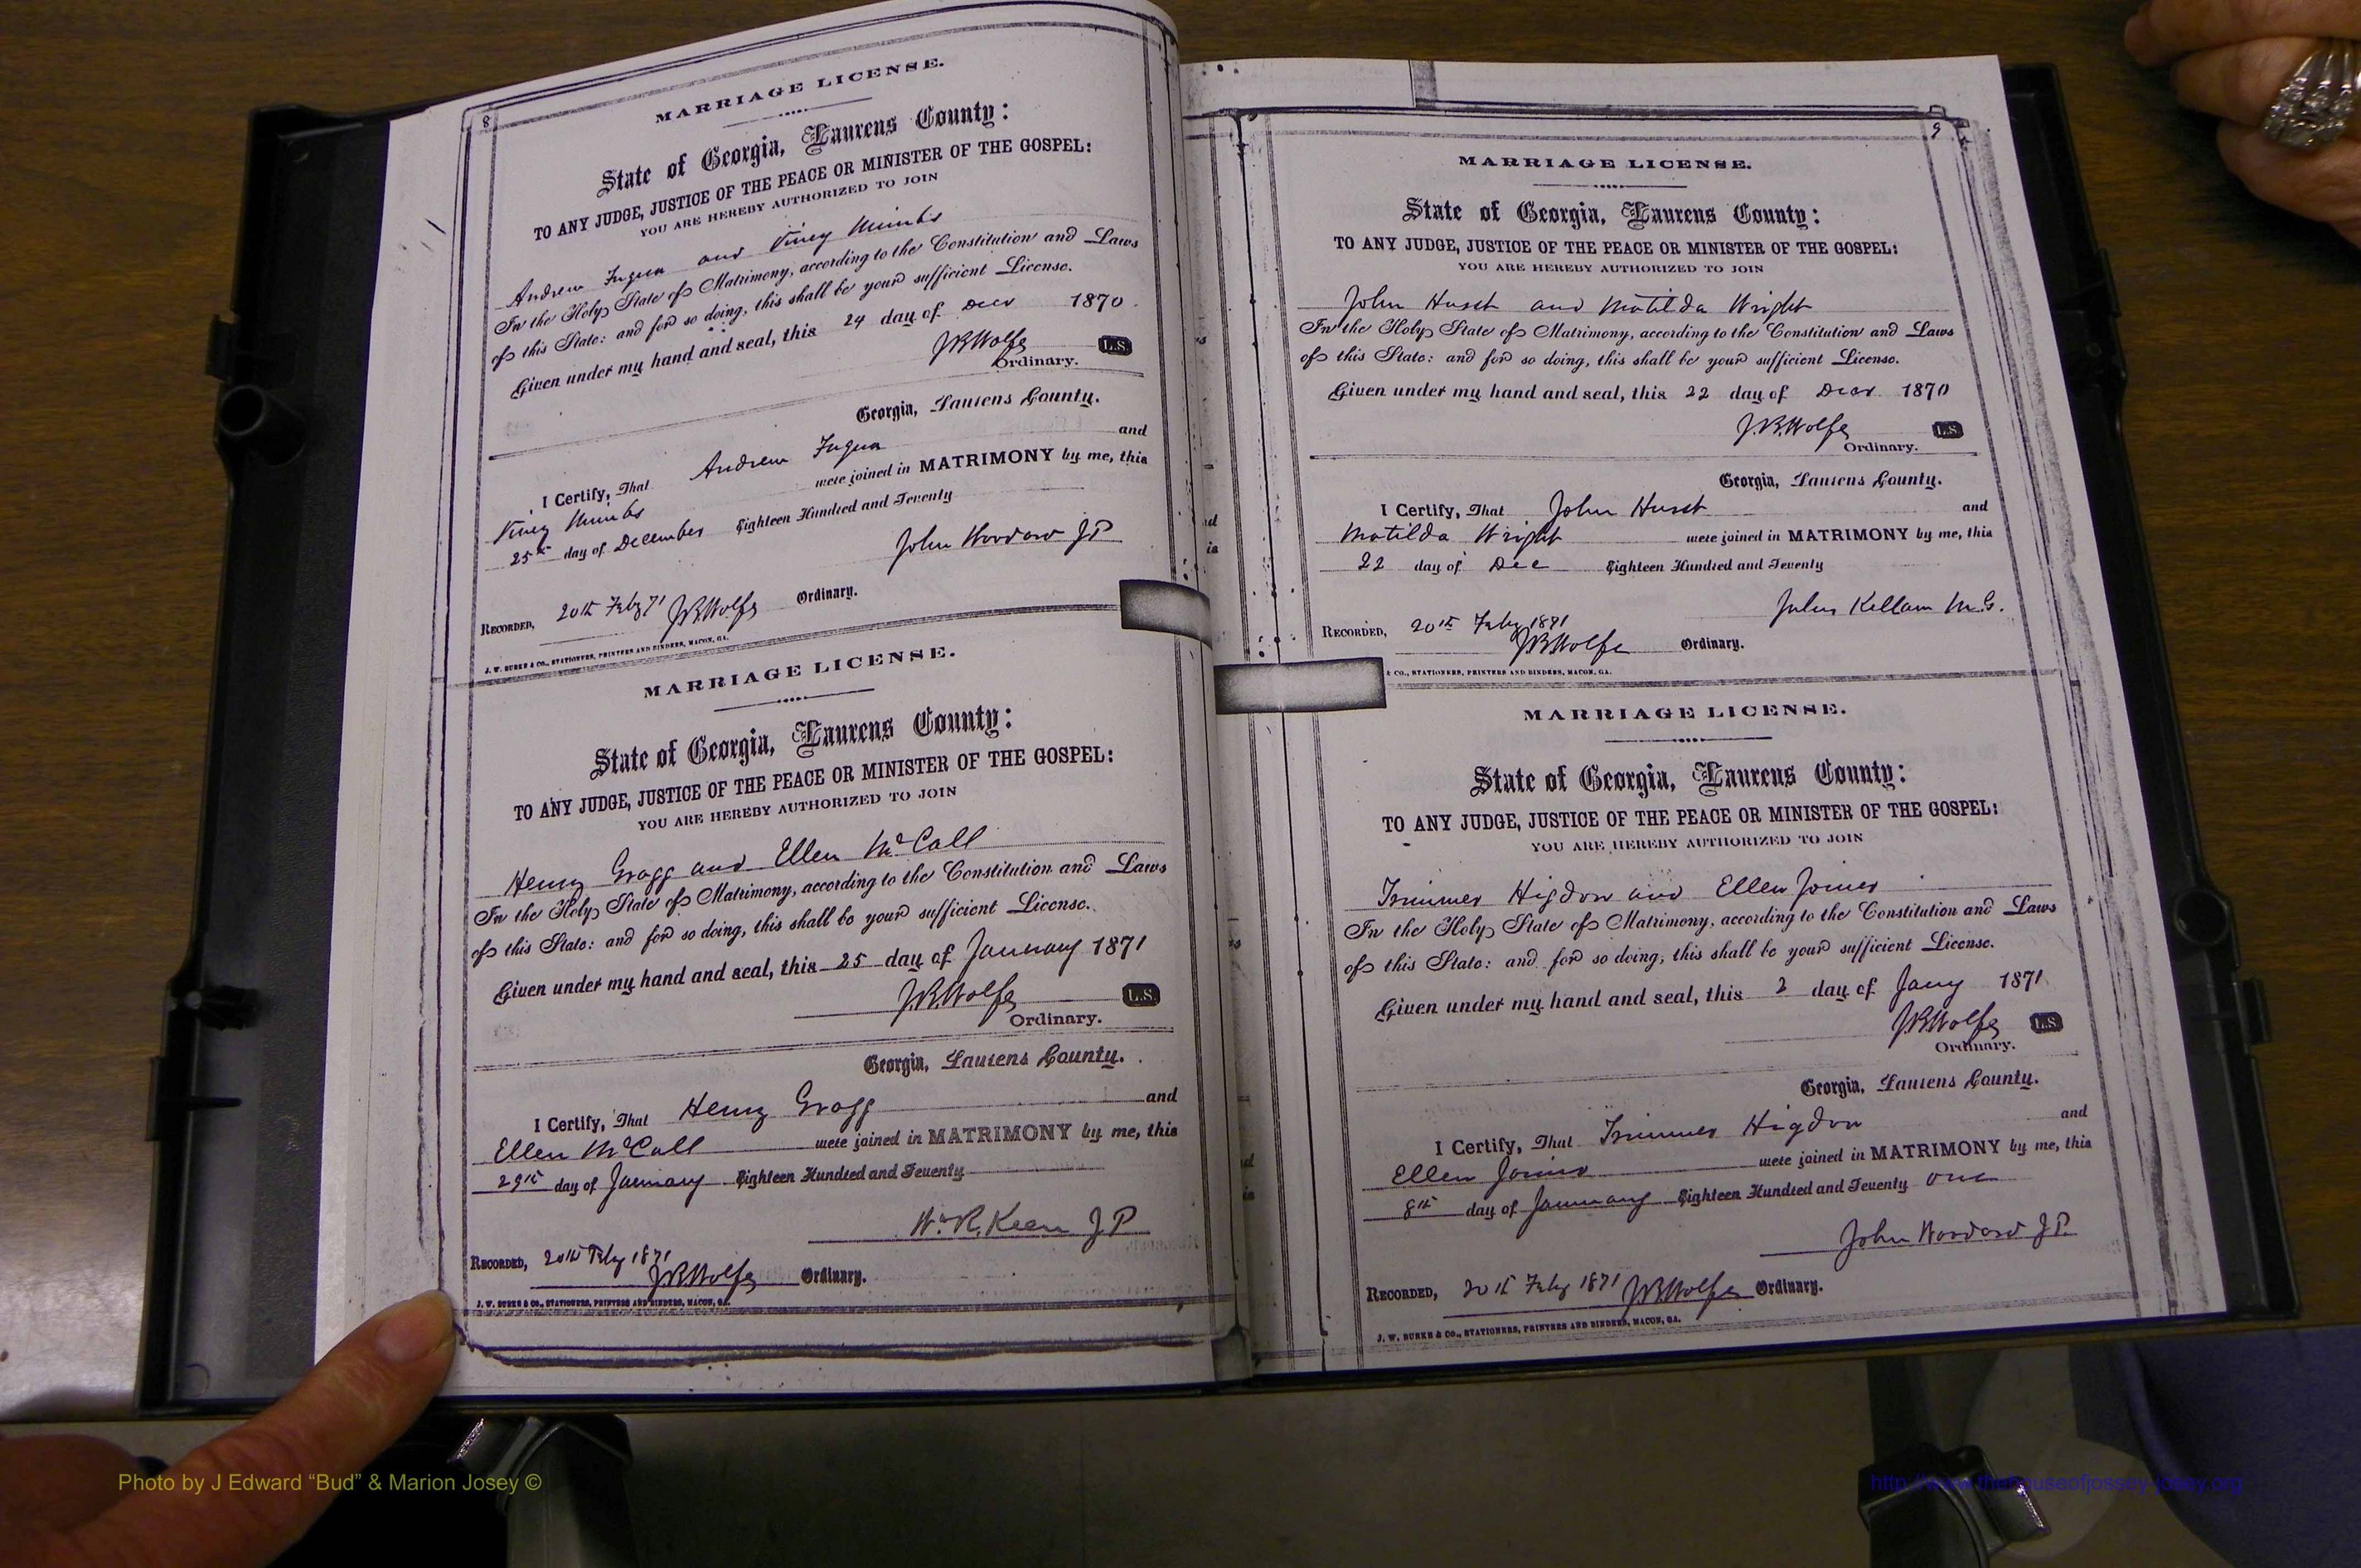 8
MARRIAGE LICENSE.
State of Georgia, Laurens County:
TO ANY JUDGE, JUSTICE OF THE PEACE OR MINISTER OF THE GOSPEL:
YOU ARE HEREBY AUTHORIZED TO JOIN
Andrew Fuqua and Viney Mimbs
In the Holy State of Matrimony, according to the Constitution and Laws
of this State: and for so doing, this shall be your sufficient License.
Given under my hand and seal, this 24 day of Decr 1870
JBWolfe L.S.
Ordinary.
Georgia, Laurens County.
I Certify, That Andrew Fuqua and
Viney Mimbs were joined in MATRIMONY by me, this
25th day of December Eighteen Hundred and Seventy
John Woodard JP
RECORDED, 20th Feby 71 JBWolfe Ordinary.
J. W. BURKE & CO., STATIONERS, PRINTERS AND BINDERS, MACON, GA.
MARRIAGE LICENSE.
State of Georgia, Laurens County:
TO ANY JUDGE, JUSTICE OF THE PEACE OR MINISTER OF THE GOSPEL:
YOU ARE HEREBY AUTHORIZED TO JOIN
Henry Gragg and Ellen McCall
In the Holy State of Matrimony, according to the Constitution and Laws
of this State: and for so doing, this shall be your sufficient License.
Given under my hand and seal, this 25 day of January 1871
JBWolfe L.S.
Ordinary.
Georgia, Laurens County.
I Certify, That Henry Gragg and
Ellen McCall were joined in MATRIMONY by me, this
29th day of January Eighteen Hundred and Seventy
Wm R. Keen JP
RECORDED, 20th Feby 1871 JBWolfe Ordinary.
J. W. BURKE & CO., STATIONERS, PRINTERS AND BINDERS, MACON, GA.
9
MARRIAGE LICENSE.
State of Georgia, Laurens County:
TO ANY JUDGE, JUSTICE OF THE PEACE OR MINISTER OF THE GOSPEL:
YOU ARE HEREBY AUTHORIZED TO JOIN
John Hurst and Matilda Wright
In the Holy State of Matrimony, according to the Constitution and Laws
of this State: and for so doing, this shall be your sufficient License.
Given under my hand and seal, this 22 day of Decr 1870
J.B.Wolfe L.S.
Ordinary.
Georgia, Laurens County.
I Certify, That John Hurst and
Matilda Wright were joined in MATRIMONY by me, this
22 day of Dec Eighteen Hundred and Seventy
Kellam M.G.
RECORDED, 20th Feby 1871 JBWolfe Ordinary.
& CO., STATIONERS, PRINTERS AND BINDERS, MACON, GA.
MARRIAGE LICENSE.
State of Georgia, Laurens County:
TO ANY JUDGE, JUSTICE OF THE PEACE OR MINISTER OF THE GOSPEL:
YOU ARE HEREBY AUTHORIZED TO JOIN
Higdon and Ellen Joiner
In the Holy State of Matrimony, according to the Constitution and Laws
of this State: and for so doing, this shall be your sufficient License.
Given under my hand and seal, this 2 day of Jany 1871
JBWolfe L.S.
Ordinary.
Georgia, Laurens County.
I Certify, That Higdon and
Ellen Joiner were joined in MATRIMONY by me, this
8th day of January Eighteen Hundred and Seventy one
John Woodard JP.
RECORDED, 20th Feby 1871 JBWolfe Ordinary.
J. W. BURKE & CO., STATIONERS, PRINTERS AND BINDERS, MACON, GA.
Photo by J Edward “Bud” & Marion Josey ©
http://www.thehouseofjossey-josey.org